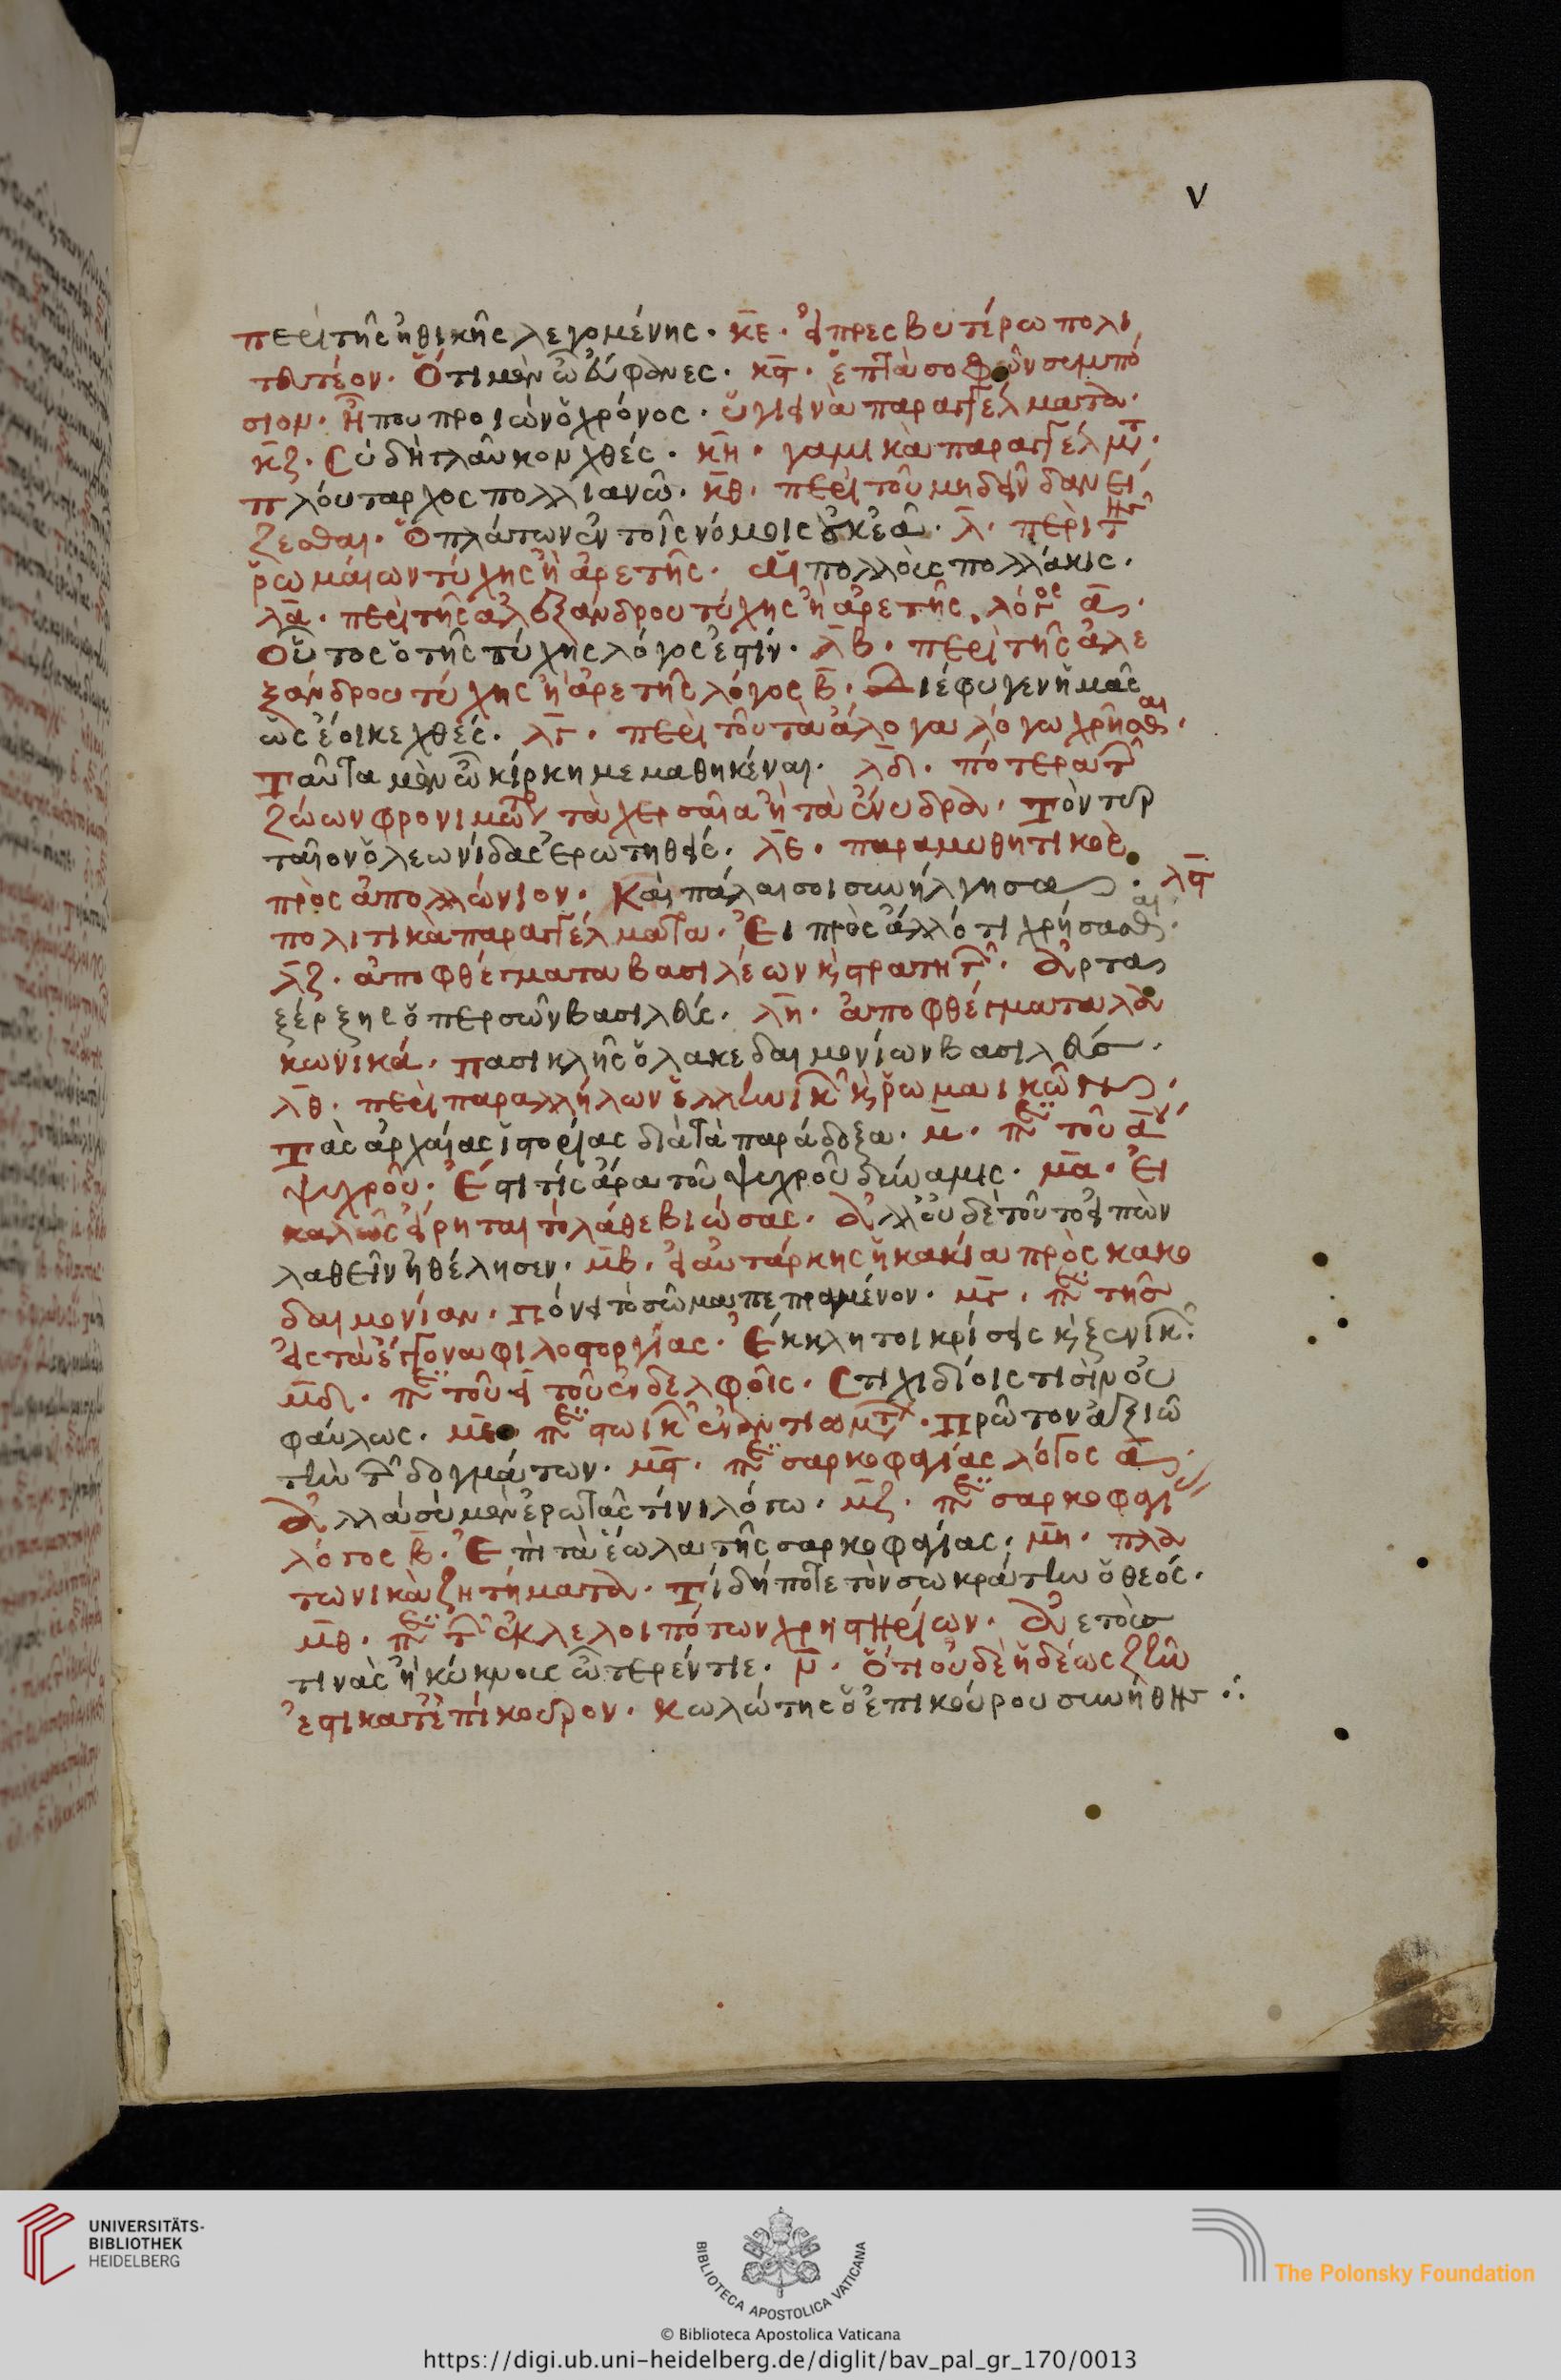 V
περὶ τῆς ἠθικῆς λεγομένης. κε. εἰ πρεσβυτέρω πολι
τευτέον. Ὅτι μὲν ὦ εὔφανες. κϛ. ἑπτὰ σοφῶν συμπό
σιον. Ἦ που προιὼν ὁ χρόνος. ὑγιεινὰ παραγγέλματα.
κζ. Σὺ δὴ γλαῦκον χθές. κη. γαμικὰ παραγγέλμτ.
πλούταρχος πολλιανῶ. κθ. περὶ τοῦ μὴ δεῖν δανεί
ζεσθαι. Ὁ πλάτων ἐν τοῖς νόμοις οὐκ ἐᾶ. λ. περὶ τῆς
ῥωμαίων τύχης ἢ ἀρετῆς. αἱ πολλοὺς πολλάκις.
λα. περὶ τῆς ἀλεξάνδρου τύχης ἢ ἀρετῆς. λόγος α.
Οὗτος ὁ τῆς τύχης λόγος ἐστίν. λβ. περὶ τῆς ἀλε
ξάνδρου τύχης ἢ ἀρετῆς λόγος β. Διέφυγεν ἡμᾶς
ὡς ἔοικε χθές. λγ. περὶ τοῦ τὰ ἄλογα λόγω χρῆσθαι.
Ταῦτα μὲν ὦ κίρκη μεμαθηκέναι. λδ. πότερα τῶν
ζώων φρονιμώτερα τὰ χερσαῖα ἢ τὰ ἔνυδρα. Τὸν τυρ
ταῖον ὁ λεωνίδας ἐρωτηθείς. λε. παραμυθητικὸς
πρὸς ἀπολλώνιον. Καὶ πάλαι σοι συνήλγησα. λϛ
πολιτικὰ παραγγέλματα. Εἰ πρὸς ἄλλό τι χρήσασθαι.
λζ. ἀποφθέγματα βασιλέων κ στρατηγῶν. Ἀρτα
ξέρξης ὁ περσῶν βασιλεύς. λη. ἀποφθέγματα λα
κωνικά. πασικλῆς ὁ λακεδαιμονίων βασιλεύς.
λθ. περὶ παραλλήλων ἑλληνικῶν κ ῥωμαικῶν.
Τὰς ἀρχαίας ἱστορίας διὰ τὰ παράδοξα. μ. περὶ τοῦ α
ψυχροῦ. Ἔστι τίς ἄρα τοῦ ψυχροῦ δύναμις. μα. Εἰ
καλῶς εἴρηται τὸ λάθε βιώσας. Ἀλλ' οὐδὲ τοῦτο εἰπὼν
λαθεῖν ἠθέλησεν. μβ. εἰ αὐτάρκης ἡ κακία πρὸς κακο
δαιμονίαν. πόνει τὸ σῶμα πεπραμένον. μγ. περὶ τῆς
εἰς τὰ ἔγγονα φιλοστοργίας. Ἔκκλητοι κρίσεις κ ξενικ.
μδ. περὶ τοῦ εἶ τοῦ ἐν δελφοῖς. Στιχιδίοις τισὶν οὐ
φαύλως. με. περὶ στωικῶν ἐναντιωμτ. πρῶτον ἀξιῶ
τὴν τῶν δογμάτων. μϛ. περὶ σαρκοφαγίας λόγος α.
Ἀλλὰ σὺ μὲν ἐρωτᾶς τίνι λόγω. μζ. περὶ σαρκοφαγί
λόγος β. Ἐπὶ τὰ ἕωλα τῆς σαρκοφαγίας. μη. πλα
τωνικὰ ζητήματα. Τί δή ποτε τὸν σωκράτην ὁ θεός.
μθ. περὶ τῶν ἐκλελοιπότων χρηστηρίων. Ἀετούς
τινας ἢ κύκνους ὦ τερέντιε. ν. ὅτι οὐδὲ ἡδέως ζῆν
ἐστι κατ' ἐπίκουρον. κωλώτης ὁ ἐπικούρου συνήθης.
UNIVERSITÄTS-
BIBLIOTHEK
HEIDELBERG
BIBLIOTECA APOSTOLICA VATICANA
The Polonsky Foundation
© Biblioteca Apostolica Vaticana
https://digi.ub.uni-heidelberg.de/diglit/bav_pal_gr_170/0013